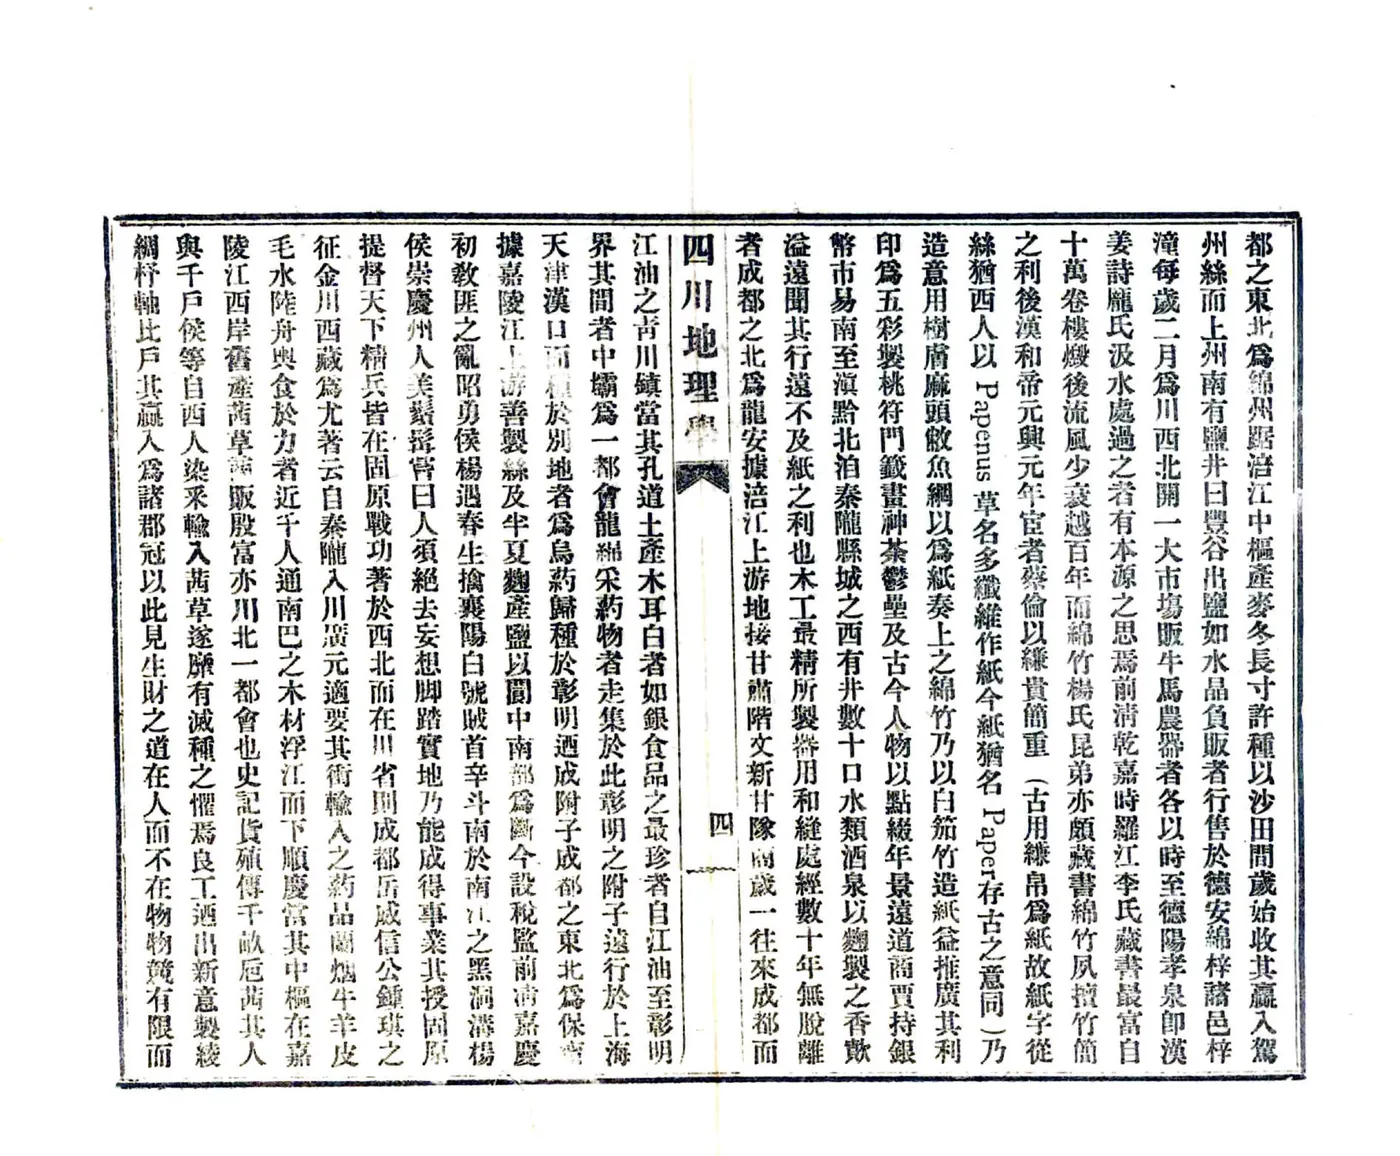 都之東北爲綿州踞涪江中樞產麥冬長寸許種以沙田間歲始收其贏入駕
州絲而上州南有鹽井曰豐谷出鹽如水晶負販者行售於德安綿梓諸邑梓
潼每歲二月爲川西北開一大市塲販牛馬農器者各以時至德陽孝泉卽漢
姜詩龐氏汲水處過之者有本源之思焉前淸乾嘉時羅江李氏藏書最富自
十萬卷樓燬後流風少衰越百年而綿竹楊氏昆弟亦頗藏書綿竹夙擅竹簡
之利後漢和帝元興元年宦者蔡倫以縑貴簡重（古用縑帛爲紙故紙字從
絲猶西人以 Papenus 草名多纖維作紙今紙猶名 Paper存古之意同）乃
造意用樹膚麻頭敝魚網以爲紙奏上之綿竹乃以白笳竹造紙益推廣其利
印爲五彩製桃符門籤畫神荼鬱壘及古今人物以點綴年景遠道商賈持銀
幣市易南至滇黔北泊秦隴縣城之西有井數十口水類酒泉以麴製之香歕
溢遠聞其行遠不及紙之利也木工最精所製器用和縫處經數十年無脫離
者成都之北爲龍安據涪江上游地接甘肅階文新甘隊商歲一往來成都而
四川地理學
四
江油之靑川鎮當其孔道土產木耳白者如銀食品之最珍者自江油至彰明
界其間者中壩爲一都會龍綿采葯物者走集於此彰明之附子遠行於上海
天津漢口而種於別地者爲烏葯歸種於彰明迺成附子成都之東北爲保寧
據嘉陵江上游善製絲及半夏麴產鹽以閬中南部爲斷今設稅監前淸嘉慶
初敎匪之亂昭勇侯楊遇春生擒襄陽白號賊首辛斗南於南江之黑洞溝楊
侯崇慶州人美鬚髯嘗曰人須絕去妄想脚踏實地乃能成得事業其授固原
提督天下精兵皆在固原戰功著於西北而在川省則成都岳威信公鍾琪之
征金川西藏爲尤著云自秦隴入川廣元適要其衝輸入之葯品蘭烟牛羊皮
毛水陸舟輿食於力者近千人通南巴之木材浮江而下順慶當其中樞在嘉
陵江西岸舊產茜草商販殷富亦川北一都會也史記貨殖傳千畝巵茜其人
與千戶侯等自西人染釆輸入茜草遂靡有滅種之懼焉良工迺出新意製綾
綢杼軸比戶其贏入爲諸郡冠以此見生財之道在人而不在物物競有限而